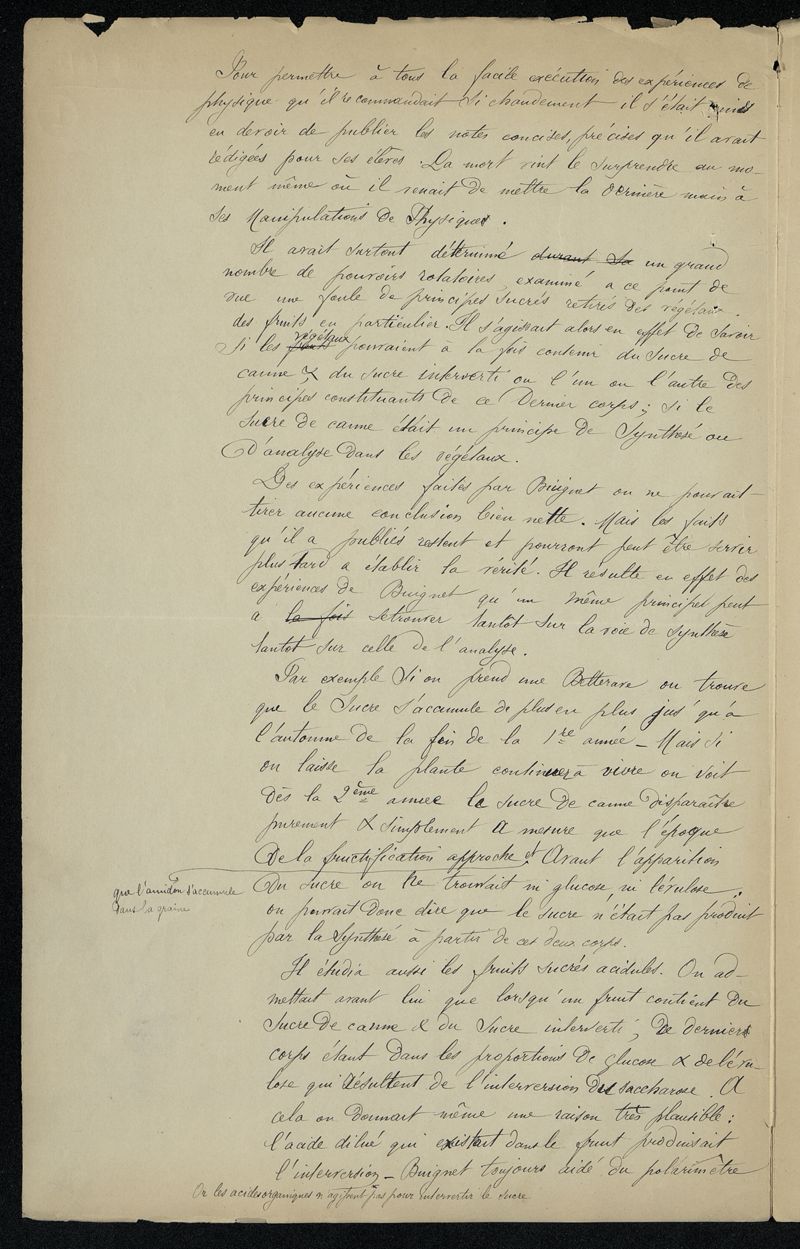 Pour permettre à tous la facile exécution des expériences de
physique qu'il recommandait si chaudement il s'était mis
en devoir de publier les notes concises, précises qu'il avait
rédigées pour ses élèves. La mort vint le surprendre au mo-
ment même où il venait de mettre la dernière main à
ses Manipulations de Physiques.
Il avait surtout déterminé durant sa un grand
nombre de pouvoirs rotatoires, examiné a ce point de
vue une foule de principes sucrés retirés des végétaux.
des fruits en particulier. Il s'agissait alors en effet de savoir
végétaux
si les pouvaient à la fois contenir du sucre de
canne & du sucre interverti ou l'un ou l'autre des
principes constituants de ce dernier corps; si le
sucre de canne était un principe de synthèse ou
d'analyse dans les végétaux.
Des expériences faites par Buignet on ne pouvait
tirer aucune conclusion bien nette. Mais les faits
qu'il a publiés restent et pourront peut être servir
plus tard a établir la vérité. Il résulte en effet des
expériences de Buignet qu'un même principes peut
a la fois se trouver tantôt sur la voie de synthèse
tantôt sur celle de l'analyse.
Par exemple si on prend une Betterave on trouve
que le sucre s'accumule de plus en plus jus'qu'a
l'automne de la fin de la 1re année - Mais si
on laisse la plante continuer à vivre on voit
dès la 2ème annee le sucre de canne disparaître
purement & simplement a mesure que l'époque
de la fructification approche et Avant l'apparition
que l'amidon s'accumule
dans la graine
du sucre on ne trouvait ni glucose, ni lévulose.
on pouvait donc dire que le sucre n'était pas produit
par la synthèse à partir de ces deux corps.
Il étudia aussi les fruits sucrés acidules. On ad-
mettait avant lui que lorsqu'un fruit contient du
sucre de canne & du sucre interverti, ce dernier
corps étant dans les proportions de glucose & de lévu-
lose qui résultent de l'interversion du saccharose. A
cela on donnait même une raison très plausible:
l'acide dilué qui existait dans le fruit produisait
l'interversion - Buignet toujours aidé du polarimètre
Or les acides organiques n'agissent pas pour intervertir le sucre